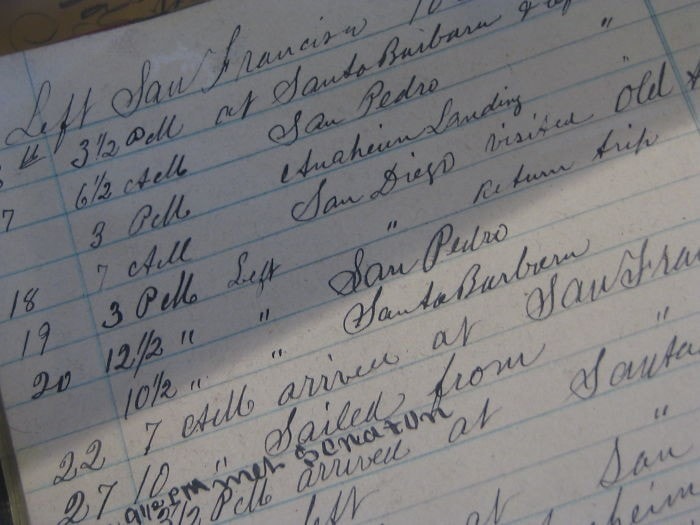 Left San Francisco 10
th 3½ PM at Santa Barbara & of
7 6½ AM San Pedro "
3 PM Anaheim Landing "
7 AM San Diego visited Old
18 3 PM Left " Return trip
19 12½ " " San Pedro
20 10½ " " Santa Barbara
7 AM arrived at San Fran
22 10 " Sailed from "
27 3½ PM arrived at Santa
9½ PM met Senator
left "
at San